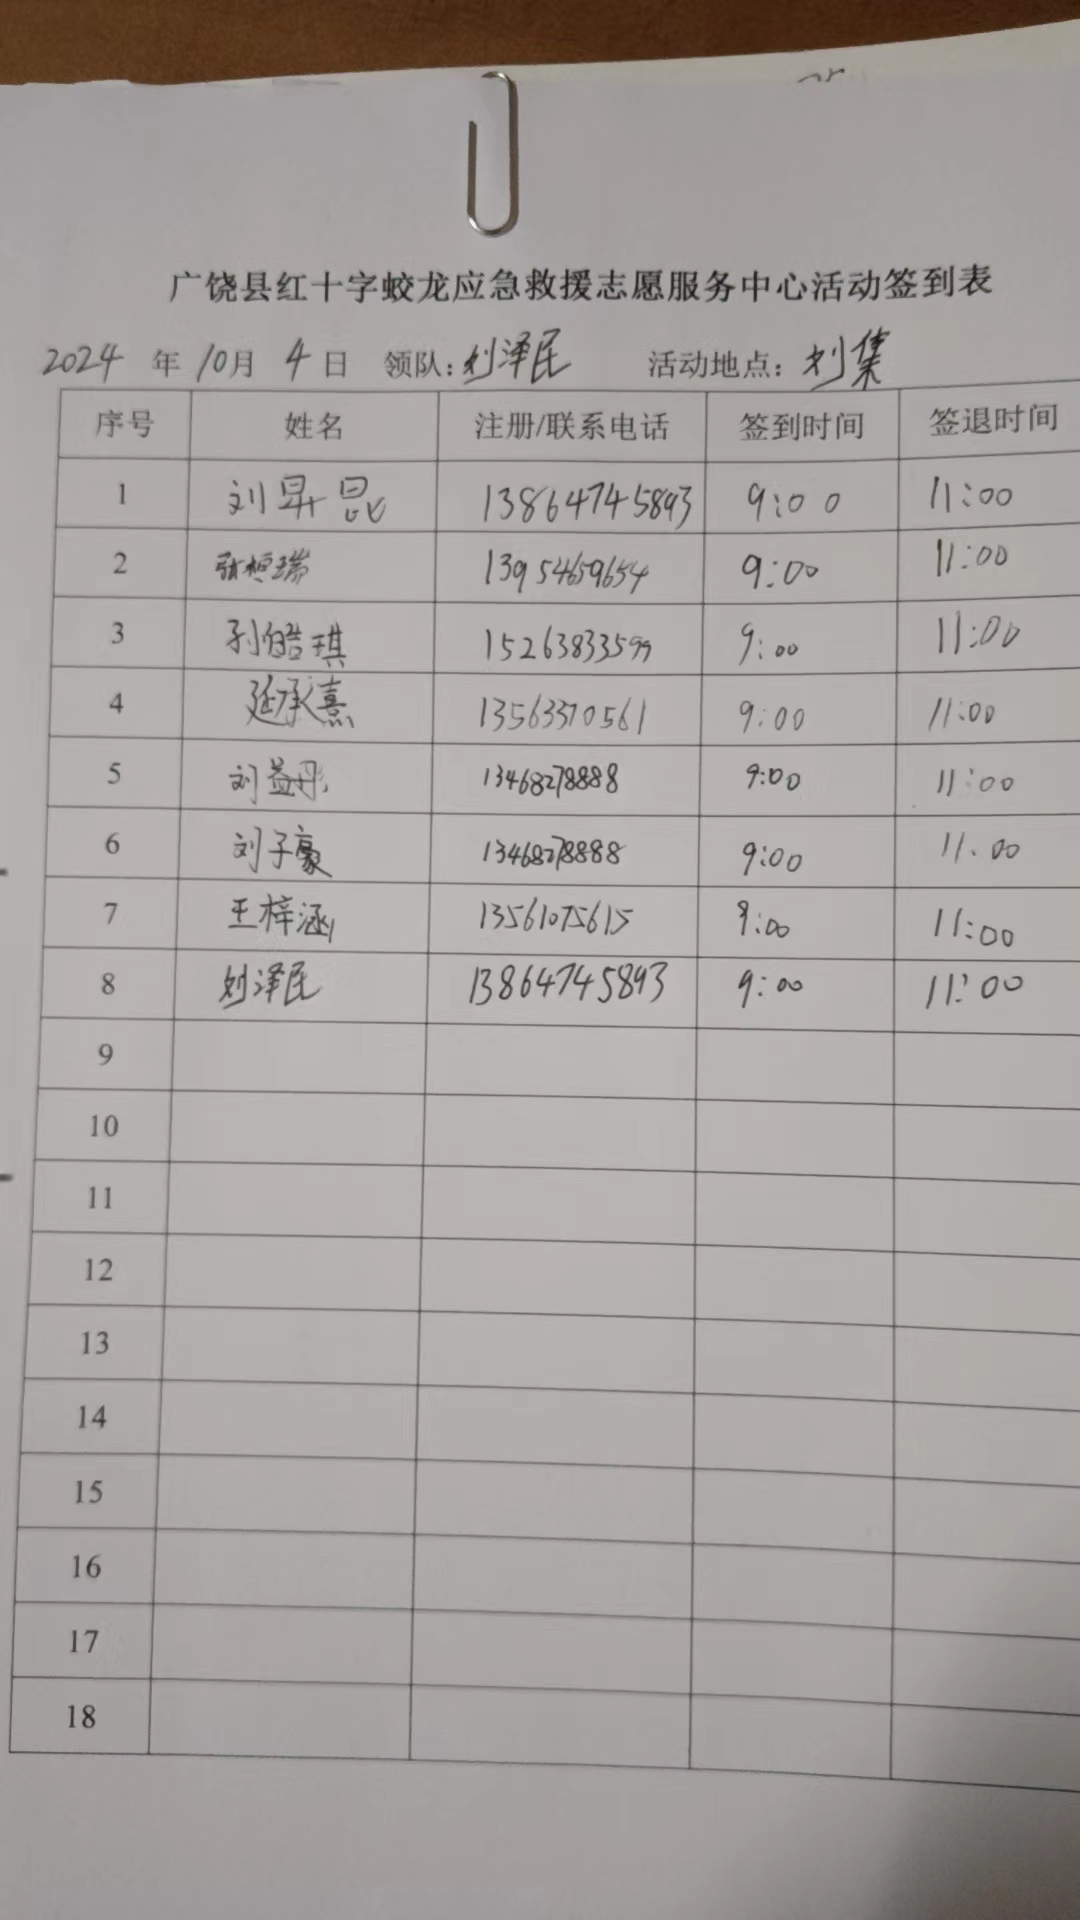 广饶县红十字蛟龙应急救援志愿服务中心活动签到表
2024 年 10月 4 日 领队:刘泽民 活动地点:刘集
序号 姓名 注册/联系电话 签到时间 签退时间
1 刘昇昆 13864745893 9:00 11:00
2 张桓瑞 13954659654 9:00 11:00
3 孙皓琪 15263833599 9:00 11:00
4 延承熹 13563370561 9:00 11:00
5 刘益彤 13468278888 9:00 11:00
6 刘子豪 13468278888 9:00 11:00
7 王梓涵 13561075615 9:00 11:00
8 刘泽民 13864745893 9:00 11:00
9
10
11
12
13
14
15
16
17
18